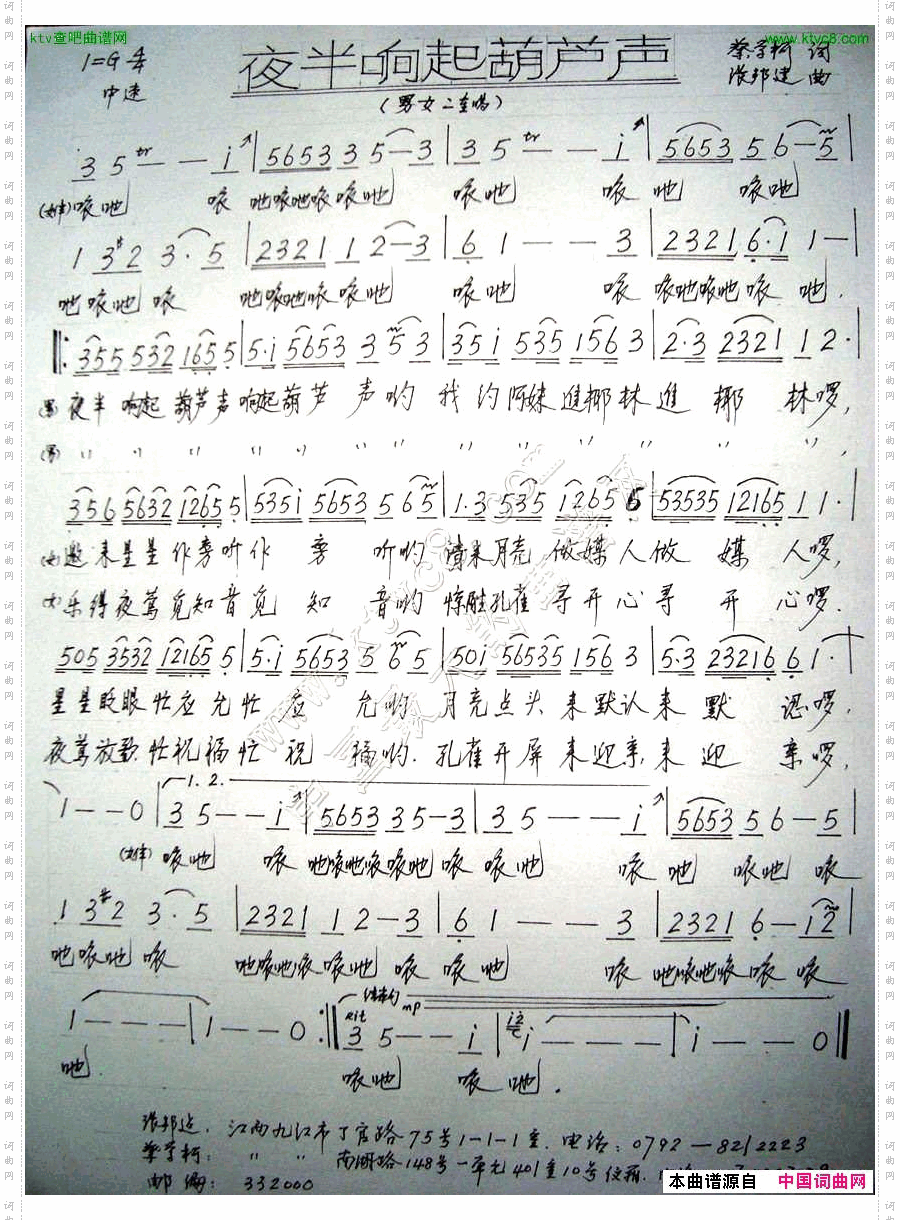 ktv查吧曲谱网
www.ktvc8.com
1=G 4/4
夜半响起葫芦声
蔡学柯 词
中速
张邦建 曲
(男女二重唱)
3 5 tr — — i | 5653 3 5 — 3 | 3 5 tr — — i | 5653 5 6 — 5 |
(女声)咳吔 咳 吔咳吔咳咳吔 咳吔 咳 吔 咳吔
1 3 #2 3· 5 | 2321 1 2 — 3 | 6 1 — — 3 | 2321 6·1 1 — |
吔咳吔 咳 吔咳吔咳咳吔 咳吔 咳 咳吔咳吔咳 吔.
‖: 355 532 165 5 | 5·i 5653 3 5 3 | 35i 535 156 3 | 2·3 2321 1 2· |
(男)夜半 响起 葫芦声响起葫芦 声哟 我约阿妹进椰林進 椰 林啰,
(男) " " " " " " " " " " " " " "
356 5632 1265 5 | 535i 5653 5 65 | 1·3 535 1265 5 | 53535 12165 1 1· |
(女)邀来星星作旁听作 旁 听哟 请来月亮 做媒人做 媒 人啰,
(女)乐得夜莺觅知音觅 知 音哟 惊醒孔雀 寻开心寻 开 心啰.
505 3532 12165 5 | 5·i 5653 5 65 | 50i 56535 156 3 | 5·3 23216 6 1· |
星星眨眼忙应允忙 应 允哟 月亮点头 来默认来 默 认啰,
夜莺放歌 忙祝福忙 祝 福哟. 孔雀开屏 来迎亲,来 迎 亲啰,
1.2.
1 — — 0 | 3 5 — — i | 5653 3 5 — 3 | 3 5 — — i | 5653 5 6 — 5 |
(女声) 咳吔 咳 吔咳吔咳咳吔 咳 咳吔 咳 吔 咳吔 咳
1 3 #2 3· 5 | 2321 1 2 — 3 | 6 1 — — 3 | 2321 6 — i2 |
吔咳吔 咳 吔咳吔咳咳吔 咳 咳吔 咳 吔咳吔咳 咳 咳
结束句
rit mp
1 — — — | 1 — — 0 :‖ 3 5 — — i | i — — — | i — — 0 ‖
吔. 咳吔 咳 吔.
张邦建. 江西九江市丁官路75号1-1-1室. 电话: 0792—8212223
蔡学柯: " " 南湖路148号一单元401室10号信箱.
邮编: 332000
本曲谱源自 中国词曲网